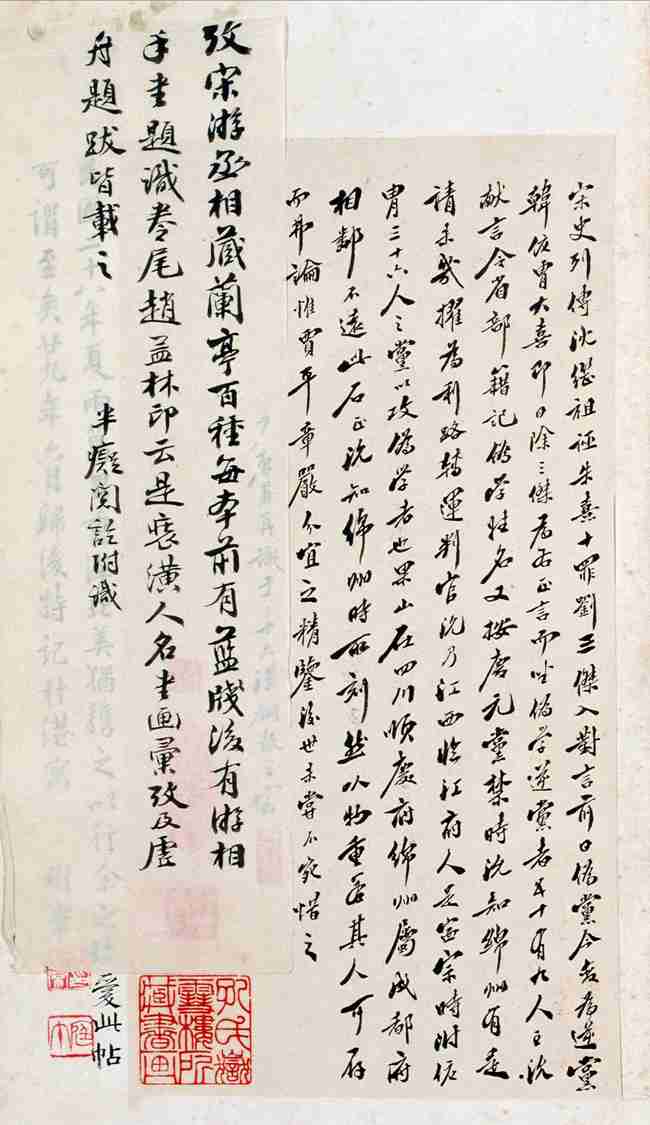 宋史列傳沈繼祖誣朱熹十罪劉三傑入對言前日偽黨今為逆黨
韓侂冑大喜即日除三傑為右正言而坐偽學逆黨者五十有九人王沇
献言令省部籍記偽學姓名又按慶元黨禁時沇知綿州有是
請未幾擢為利路轉運判官沇乃江西臨江府人是寧宗時附侂
冑三十六人之黨以攻偽學者也果山在四川順慶府綿州屬成都府
相鄰不遠此石正沇知綿州時所刻然以物重其人可存
而弗論惟賈平章嚴介宜之精鑒後世未嘗不宛惜之
攷宋游丞相藏蘭亭百種每本前有藍牋後有游相
手書題識卷尾趙孟林印云是裱潢人名書画彙攷及虛
舟題跋皆載之
半癡閱訖附識
愛此帖
孔氏嶽
雪樓所
藏書画